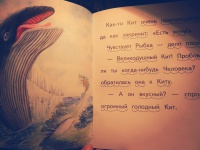 Как-то Кит очень
да как закричит: «Есть
Чувствует Рыбка — дело плохо
— Великодушный Кит! Пробовал
ли ты когда-нибудь Человека? —
обратилась она к Киту.
— А он вкусный? — спро-
огромный голодный Кит.